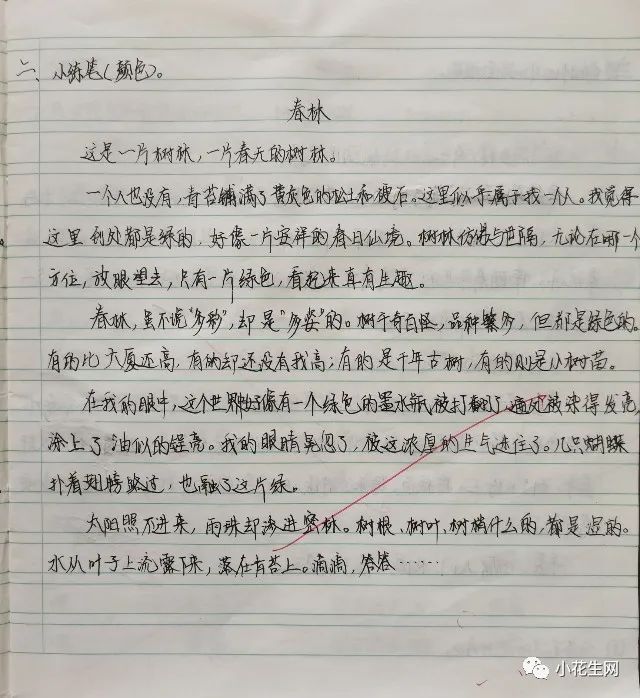 二、小练笔(颜色)。
春林
这是一片树林，一片春天的树林。
一个人也没有，青苔铺满了黄灰色的泥土和破石。这里似乎属于我一个人。我觉得
这里到处都是绿的，好像一片安祥的春日仙境。树林仿佛与世隔，无论在哪一个
方位，放眼望去，只有一片绿色，看起来真有生趣。
春林，虽不说“多彩”，却是“多姿”的。树千奇百怪，品种繁多，但都是绿色的。
有的比大厦还高，有的却还没有我高；有的是千年古树，有的则是小树苗。
在我的眼中，这个世界好像有一个绿色的墨水瓶被打翻了，被染得发亮
涂上了油似的锃亮。我的眼睛晃忽了，被这浓厚的生气迷住了。几只蝴蝶
扑着翅膀路过，也融了这片绿。
太阳照不进来，雨珠却渗进密林。树根、树叶、树梢什么的，都是湿的。
水从叶子上流下来，落在青苔上。滴滴，答答……
小花生网